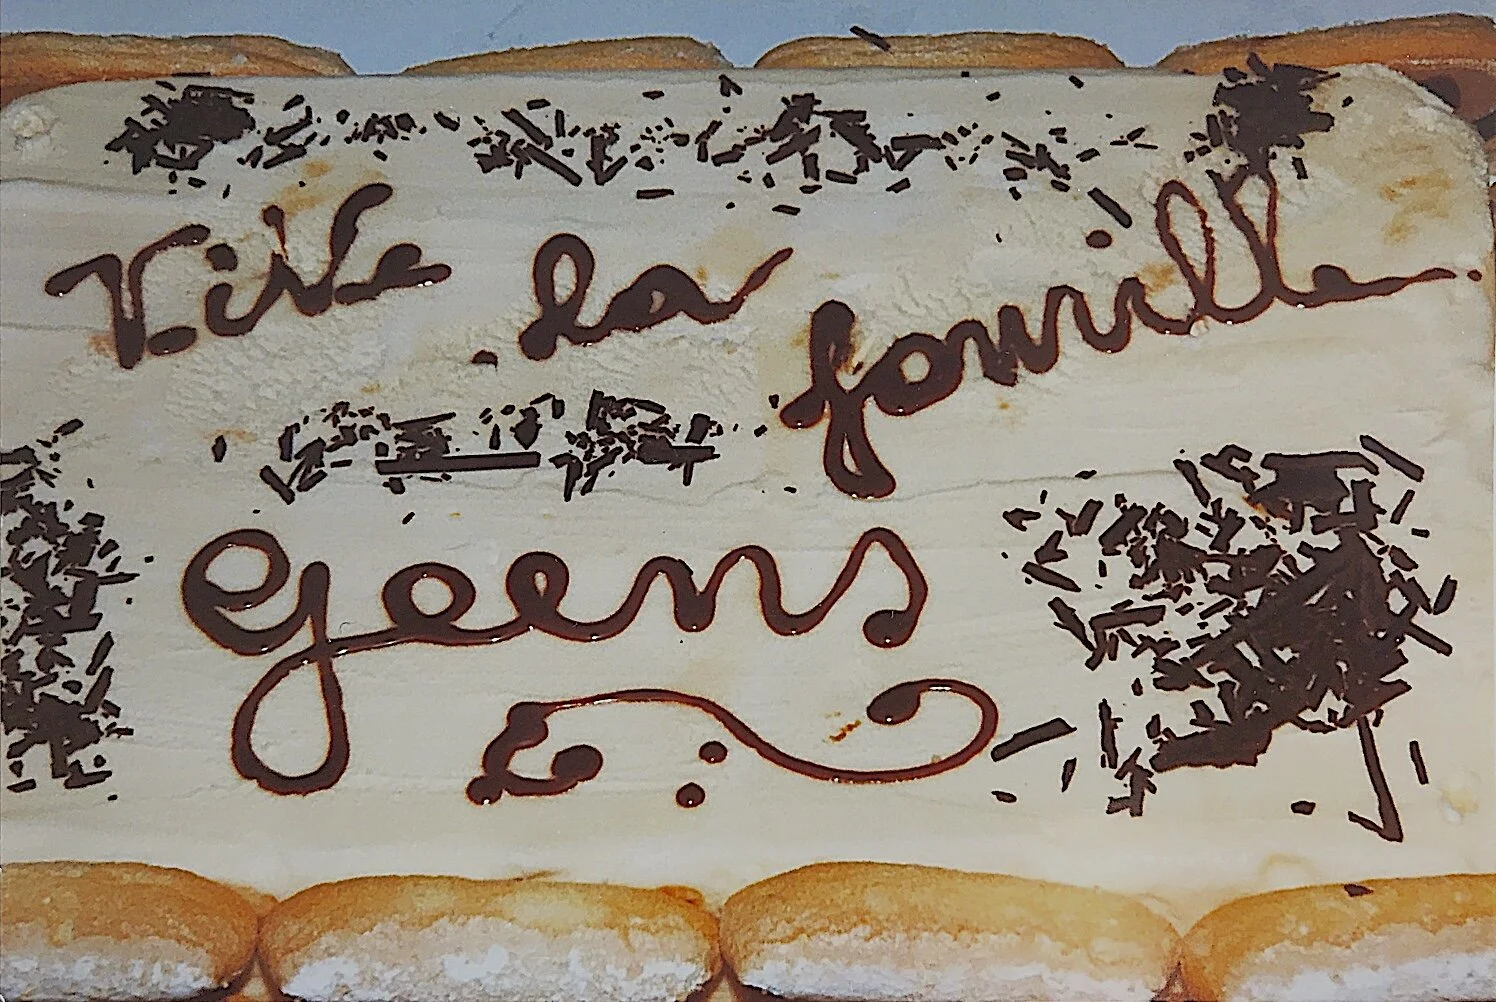 Vive la famille
Geens